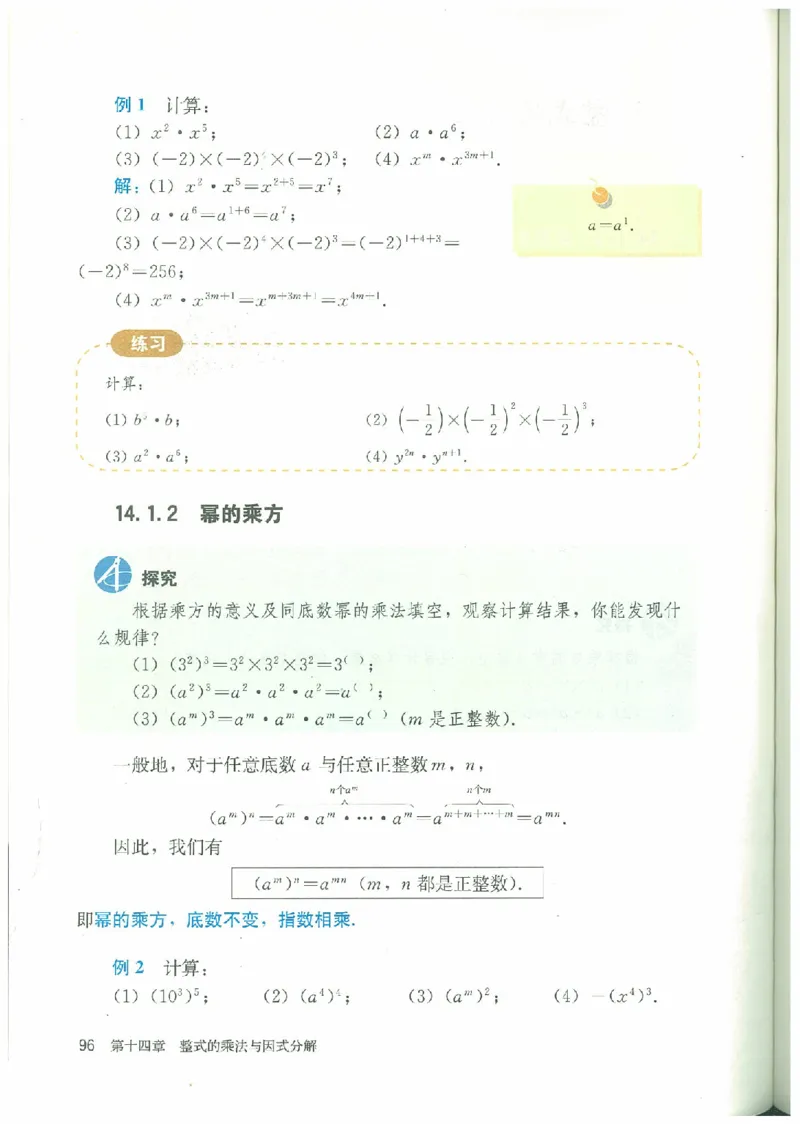 例1 计算:
(1) x²·x⁵; (2) a·a⁶;
(3) (-2)×(-2)⁴×(-2)³; (4) xᵐ·x³ᵐ⁺¹.
解:(1) x²·x⁵=x²⁺⁵=x⁷;
(2) a·a⁶=a¹⁺⁶=a⁷;
a=a¹.
(3) (-2)×(-2)⁴×(-2)³=(-2)¹⁺⁴⁺³=
(-2)⁸=256;
(4) xᵐ·x³ᵐ⁺¹=xᵐ⁺³ᵐ⁺¹=x⁴ᵐ⁺¹.
练习
计算:
(1) b⁵·b; (2) (-1/2)×(-1/2)²×(-1/2)³;
(3) a²·a⁶; (4) y²ⁿ·yⁿ⁺¹.
14.1.2 幂的乘方
探究
根据乘方的意义及同底数幂的乘法填空,观察计算结果,你能发现什
么规律?
(1) (3²)³=3²×3²×3²=3⁽ ⁾;
(2) (a²)³=a²·a²·a²=a⁽ ⁾;
(3) (aᵐ)³=aᵐ·aᵐ·aᵐ=a⁽ ⁾ (m 是正整数).
一般地,对于任意底数 a 与任意正整数 m,n,
n个aᵐ n个m
(aᵐ)ⁿ=aᵐ·aᵐ·…·aᵐ=aᵐ⁺ᵐ⁺…⁺ᵐ=aᵐⁿ.
因此,我们有
(aᵐ)ⁿ=aᵐⁿ (m,n 都是正整数).
即幂的乘方,底数不变,指数相乘.
例2 计算:
(1) (10³)⁵; (2) (a⁴)⁴; (3) (aᵐ)²; (4) -(x⁴)³.
96 第十四章 整式的乘法与因式分解